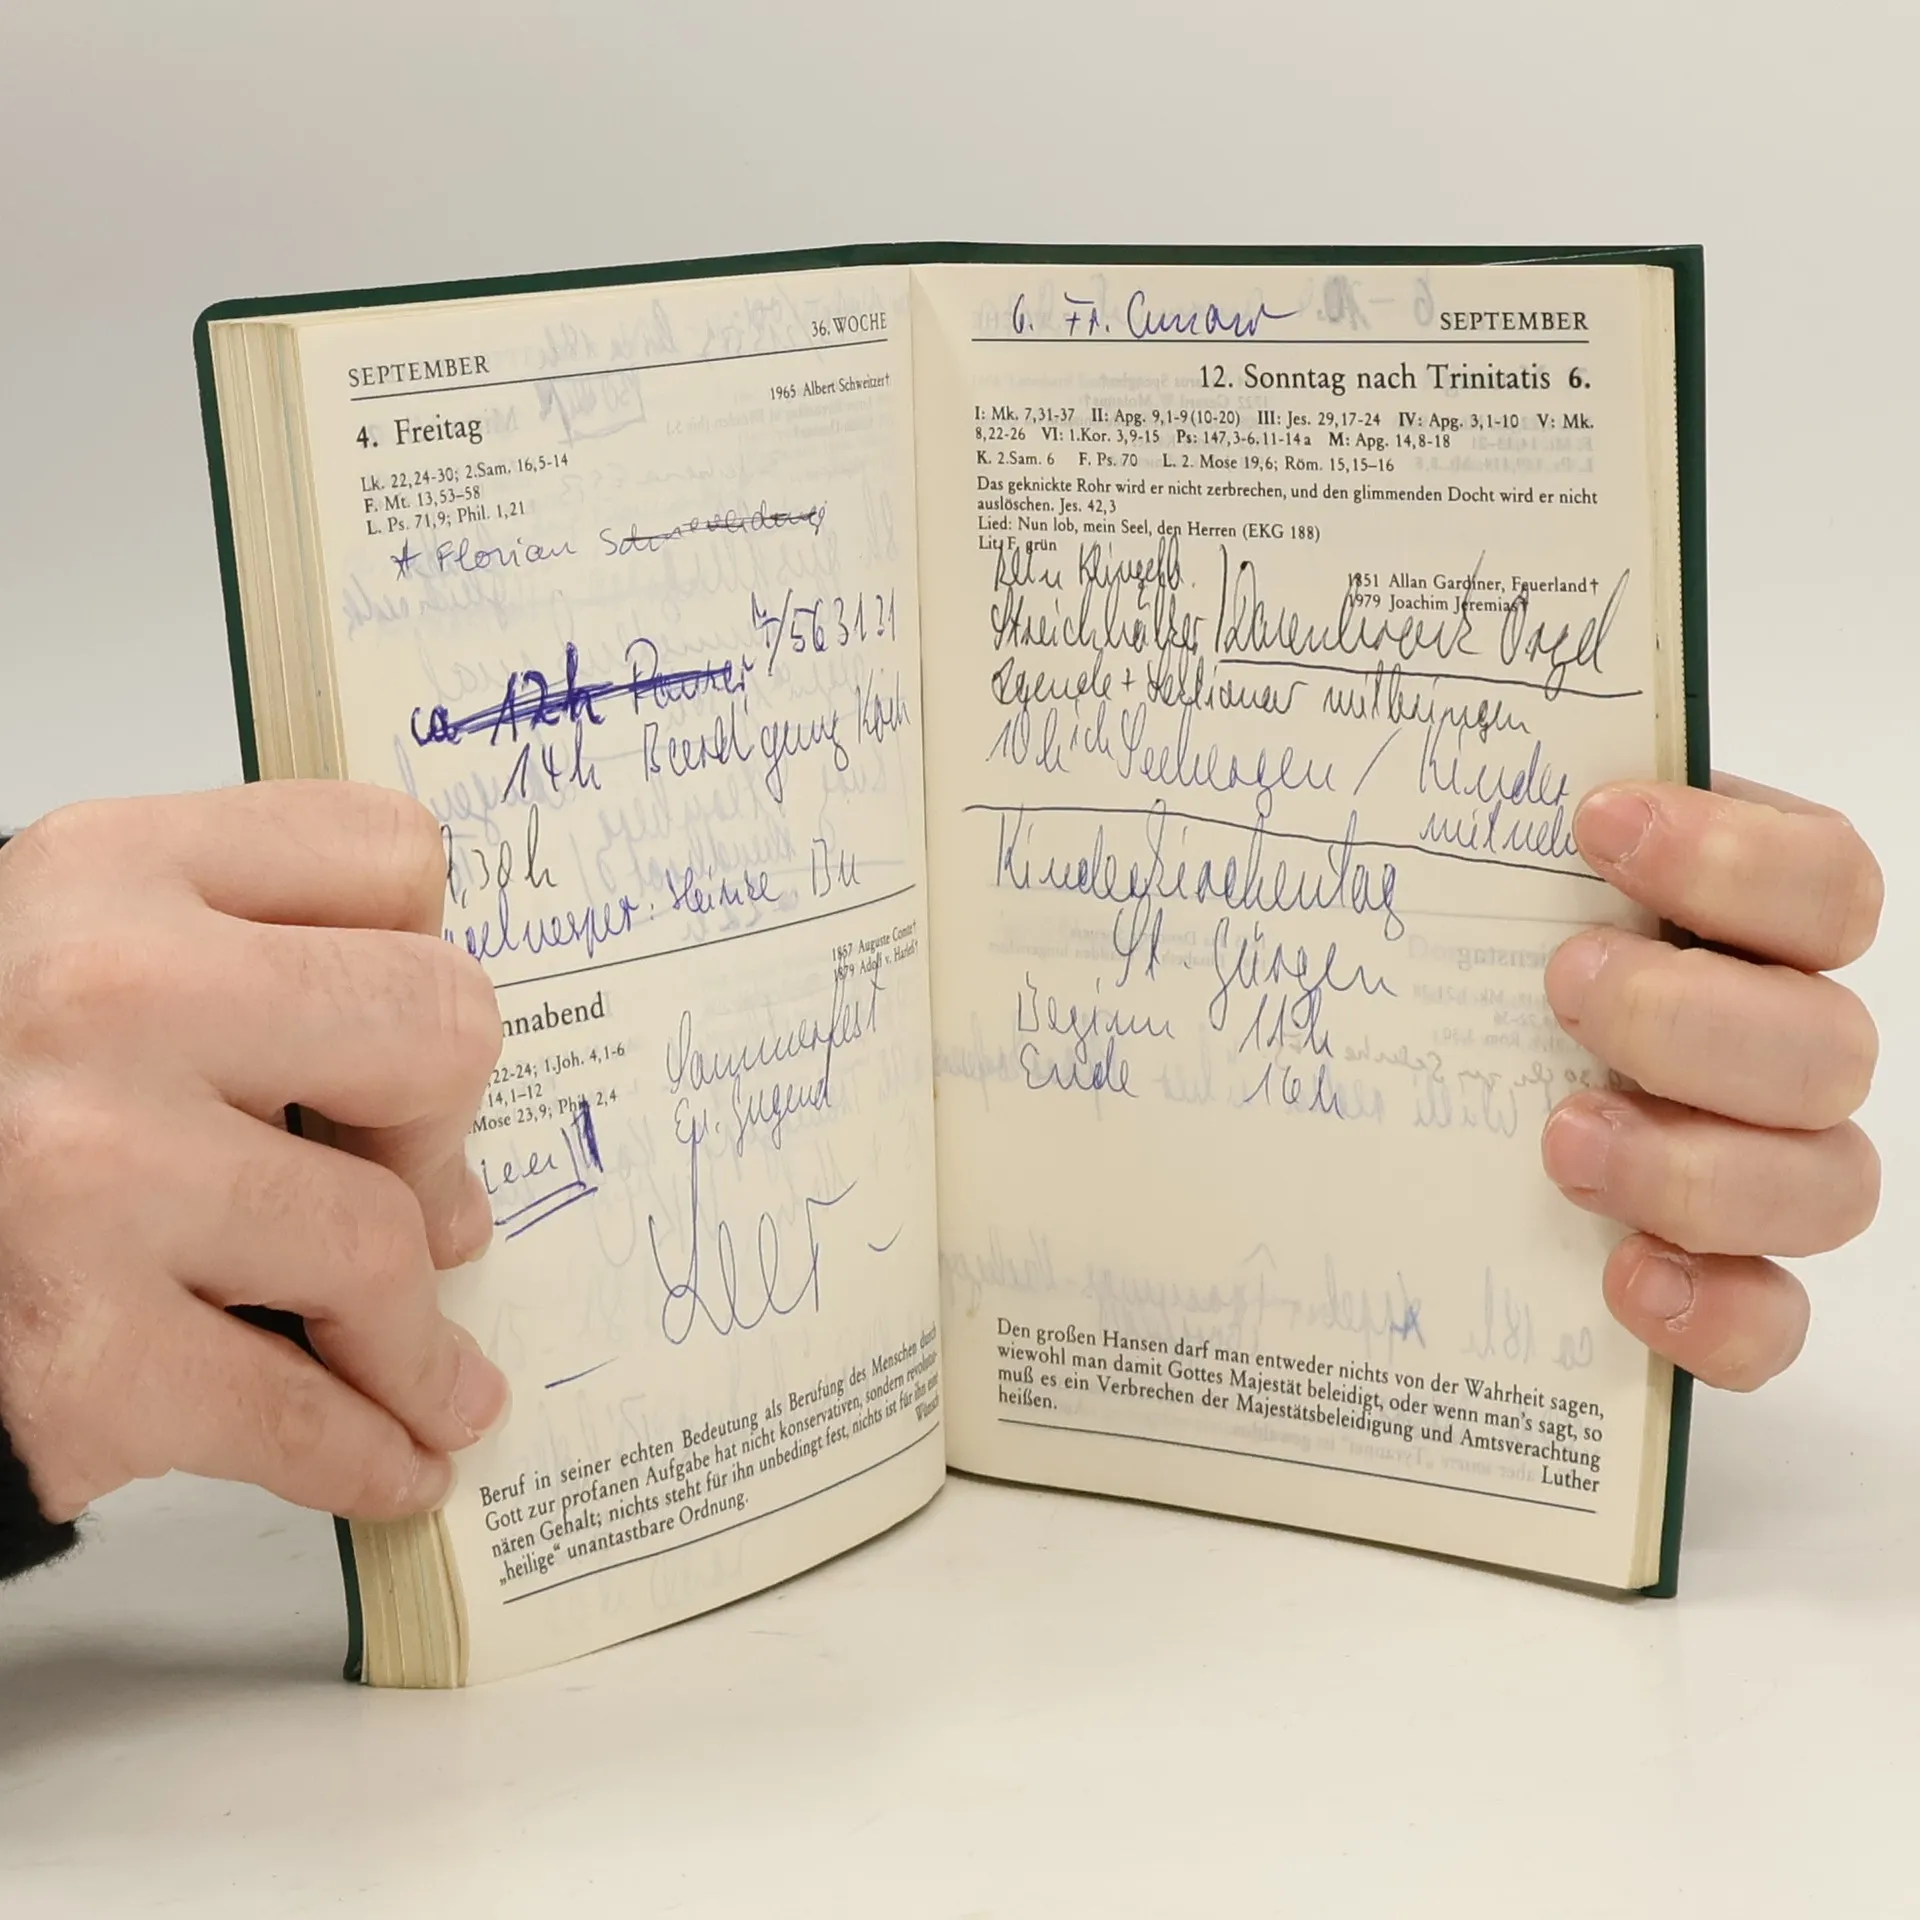 SEPTEMBER 36. WOCHE
1965 Albert Schweitzer†
4. Freitag
Lk. 22,24-30; 2.Sam. 16,5-14
F. Mt. 13,53–58
L. Ps. 71,9; Phil. 1,21
* Florian
/563131
ca 12h
14h Beerdigung Koch
,30h
1857 Auguste Comte†
1879 Adolf v. Harleß†
nnabend
,22-24; 1.Joh. 4,1-6
14,1–12
Mose 23,9; Phil. 2,4
Sommerfest
Ev. Jugend
Beruf in seiner echten Bedeutung als Berufung des Menschen durch
Gott zur profanen Aufgabe hat nicht konservativen, sondern revolutio-
nären Gehalt; nichts steht für ihn unbedingt fest, nichts ist für ihn eine
„heilige“ unantastbare Ordnung. Wünsch
6. Fr. SEPTEMBER
12. Sonntag nach Trinitatis 6.
I: Mk. 7,31-37 II: Apg. 9,1-9(10-20) III: Jes. 29,17-24 IV: Apg. 3,1-10 V: Mk.
8,22-26 VI: 1.Kor. 3,9-15 Ps: 147,3-6.11-14a M: Apg. 14,8-18
K. 2.Sam. 6 F. Ps. 70 L. 2. Mose 19,6; Röm. 15,15–16
Das geknickte Rohr wird er nicht zerbrechen, und den glimmenden Docht wird er nicht
auslöschen. Jes. 42,3
Lied: Nun lob, mein Seel, den Herren (EKG 188)
Lit. F. grün
1851 Allan Gardiner, Feuerland†
1979 Joachim Jeremias†
Streichhölzer Orgel
Agende + Lektionar mitbringen
10h ich / Kinder
Kinderkirchentag
St. Jürgen
Beginn 11h
Ende 16h
Den großen Hansen darf man entweder nichts von der Wahrheit sagen,
wiewohl man damit Gottes Majestät beleidigt, oder wenn man's sagt, so
muß es ein Verbrechen der Majestätsbeleidigung und Amtsverachtung
heißen.
Luther